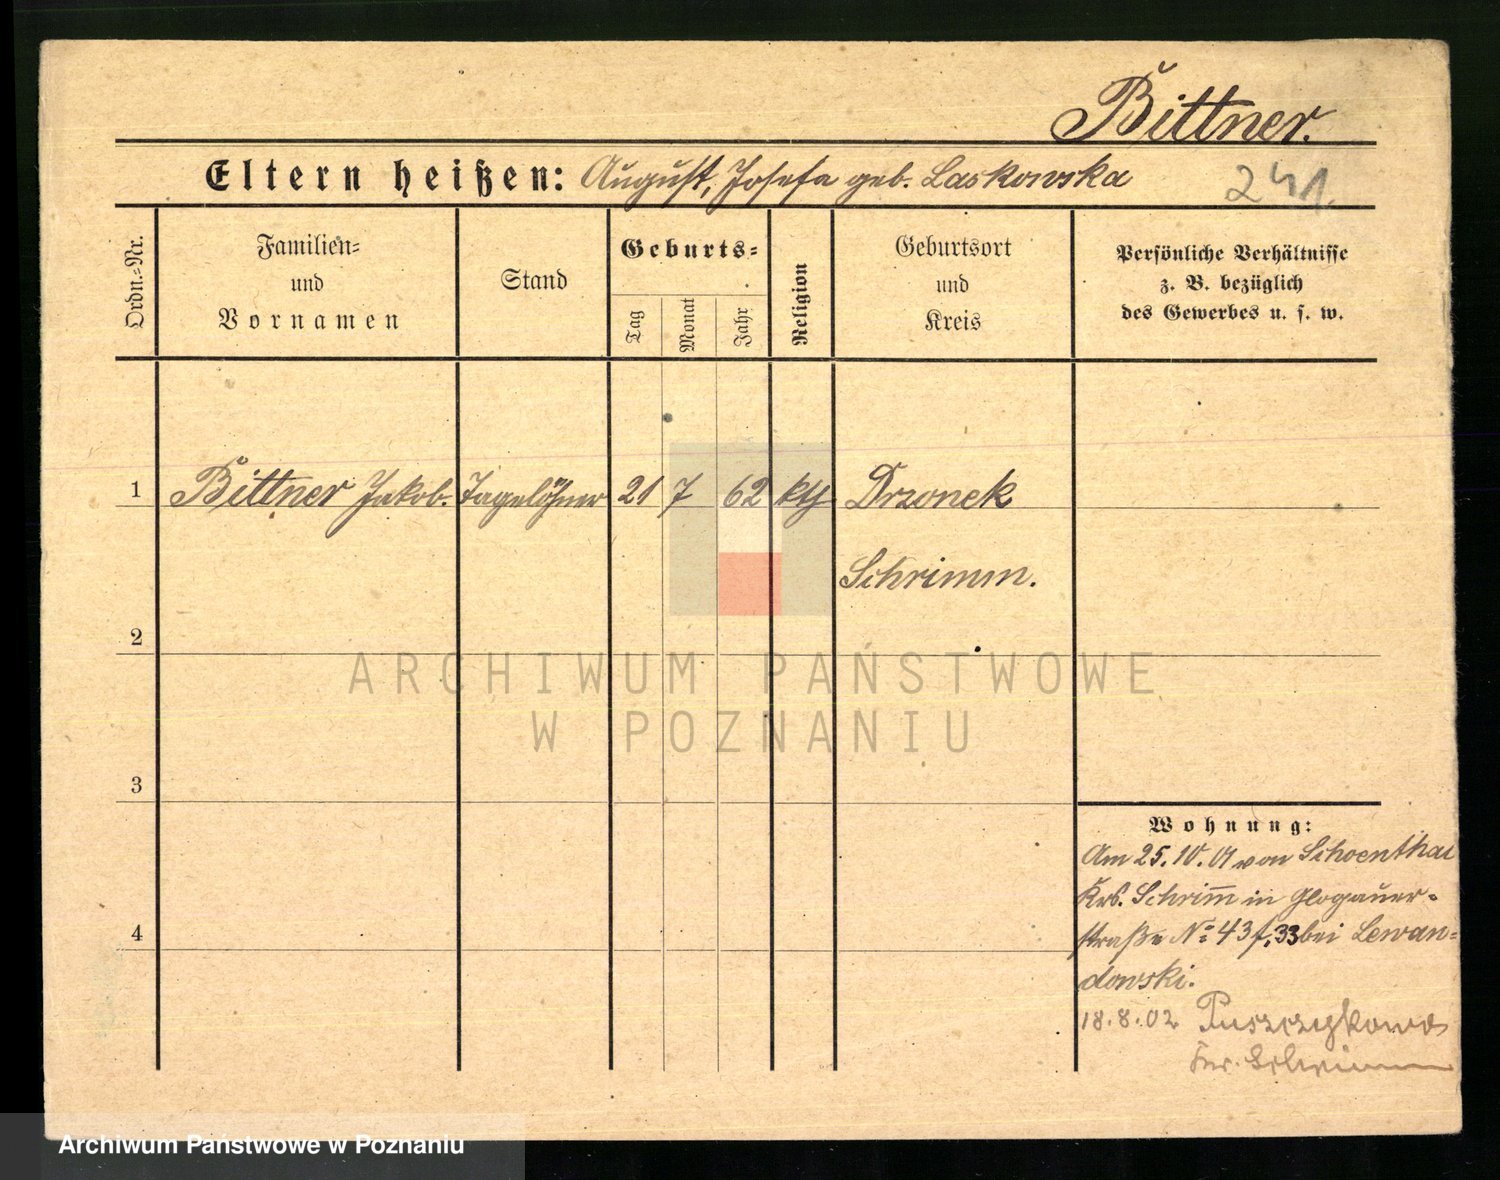 Bittner.
Eltern heißen: August, Josefa geb. Laskowska
241.
Ordn.=Nr.
Familien=
und
Vornamen
Stand
Geburts=
Tag
Monat
Jahr
Religion
Geburtsort
und
Kreis
Persönliche Verhältnisse
z. B. bezüglich
des Gewerbes u. s. w.
1 Bittner Jakob. Tagelöhner 21 7 62 kth Drzonek
Schrimm.
2
ARCHIWUM PAŃSTWOWE
W POZNANIU
3
Wohnung:
Am 25.10.01 von Schoenthal
Krs. Schrim̅ in Glogauer=
straße No 43 f, 33 bei Lewan=
4
dowski.
18.8.02 Puszczykowo
Kr. Schrimm
Archiwum Państwowe w Poznaniu